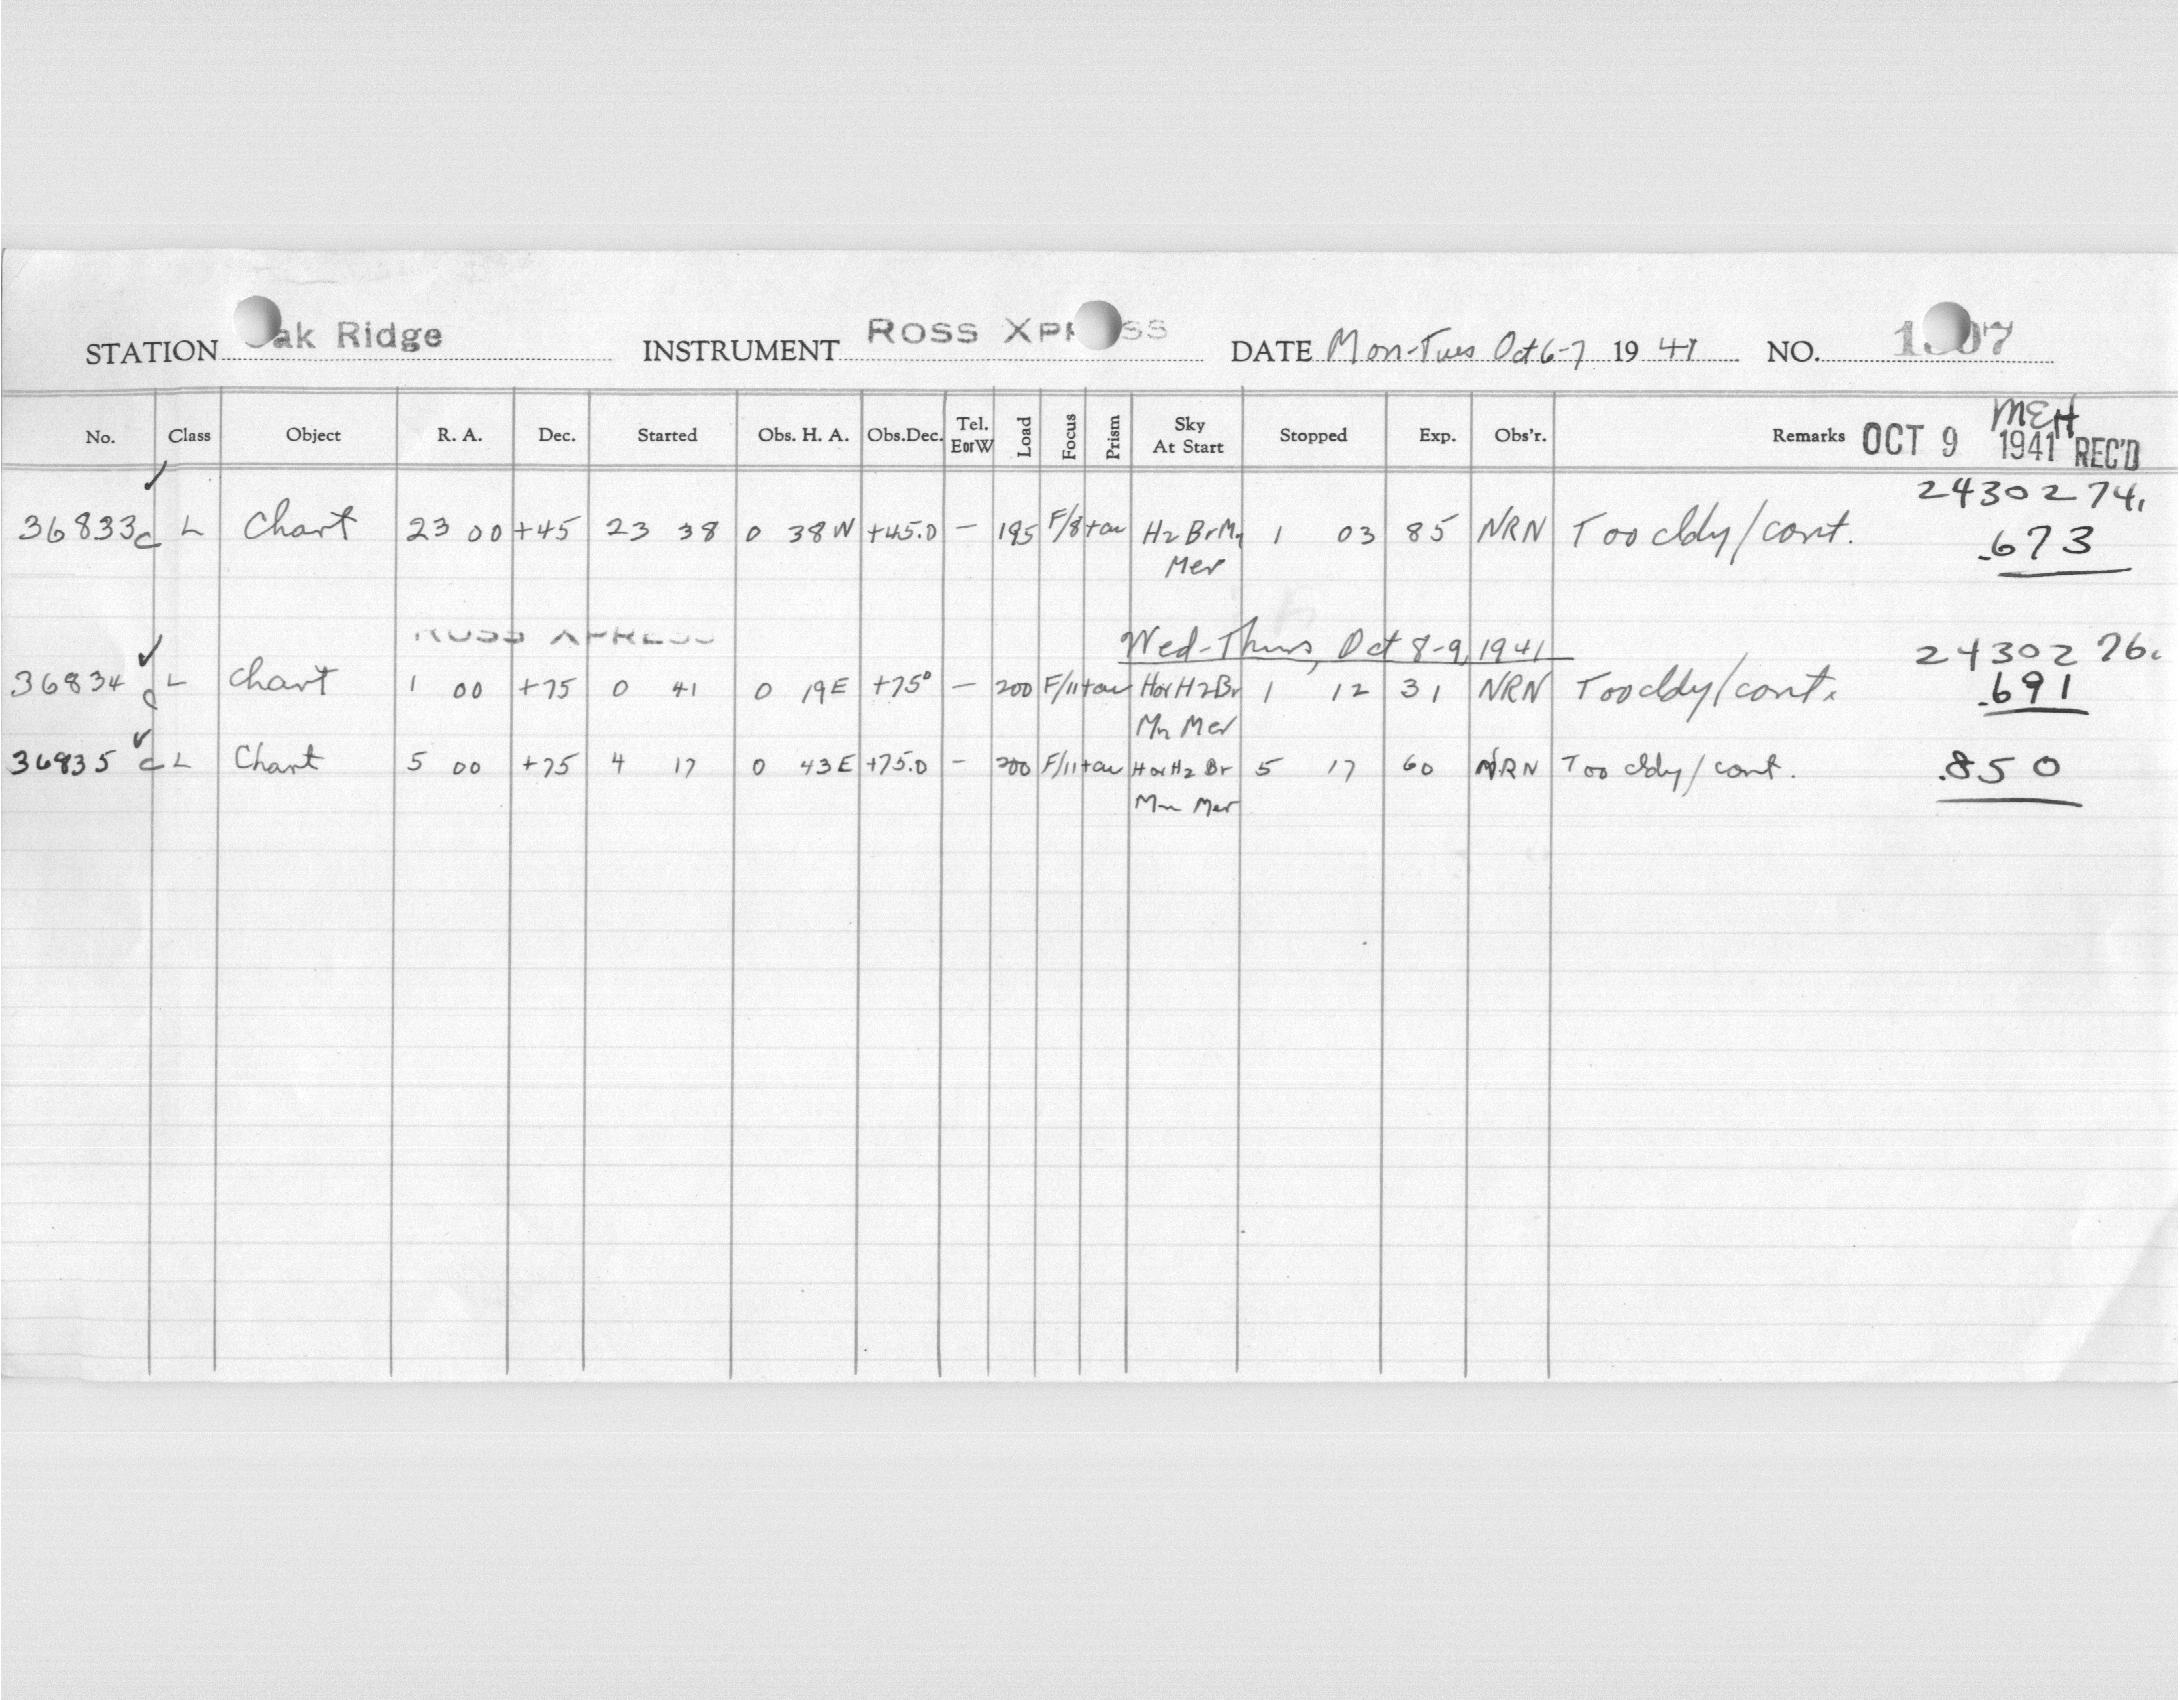 STATION ak Ridge INSTRUMENT ROSS XPRESS DATE Mon-Tues Oct 6-7 1941 NO. 1 07
No. Class Object R. A. Dec. Started Obs. H. A. Obs.Dec. Tel. E or W Load Focus Prism Sky At Start Stopped Exp. Obs'r. Remarks OCT 9 1941 REC'D
MEH
2430274.
36833 c L Chart 23 00 +45 23 38 0 38W +45.0 – 195 F/8 tau H2 Br Mn 1 03 85 NRN Too cldy/cont. .673
Mer
ROSS XPRESS Wed-Thurs, Oct 8-9, 1941 2430276.
36834 c L Chart 1 00 +75 0 41 0 19E +75° – 200 F/11 tau Hor H2 Br 1 12 31 NRN Too cldy/cont. .691
Mn Mer
36835 c L Chart 5 00 +75 4 17 0 43E +75.0 – 200 F/11 tau Hor H2 Br 5 17 60 NRN Too cldy/cont. .850
Mn Mer